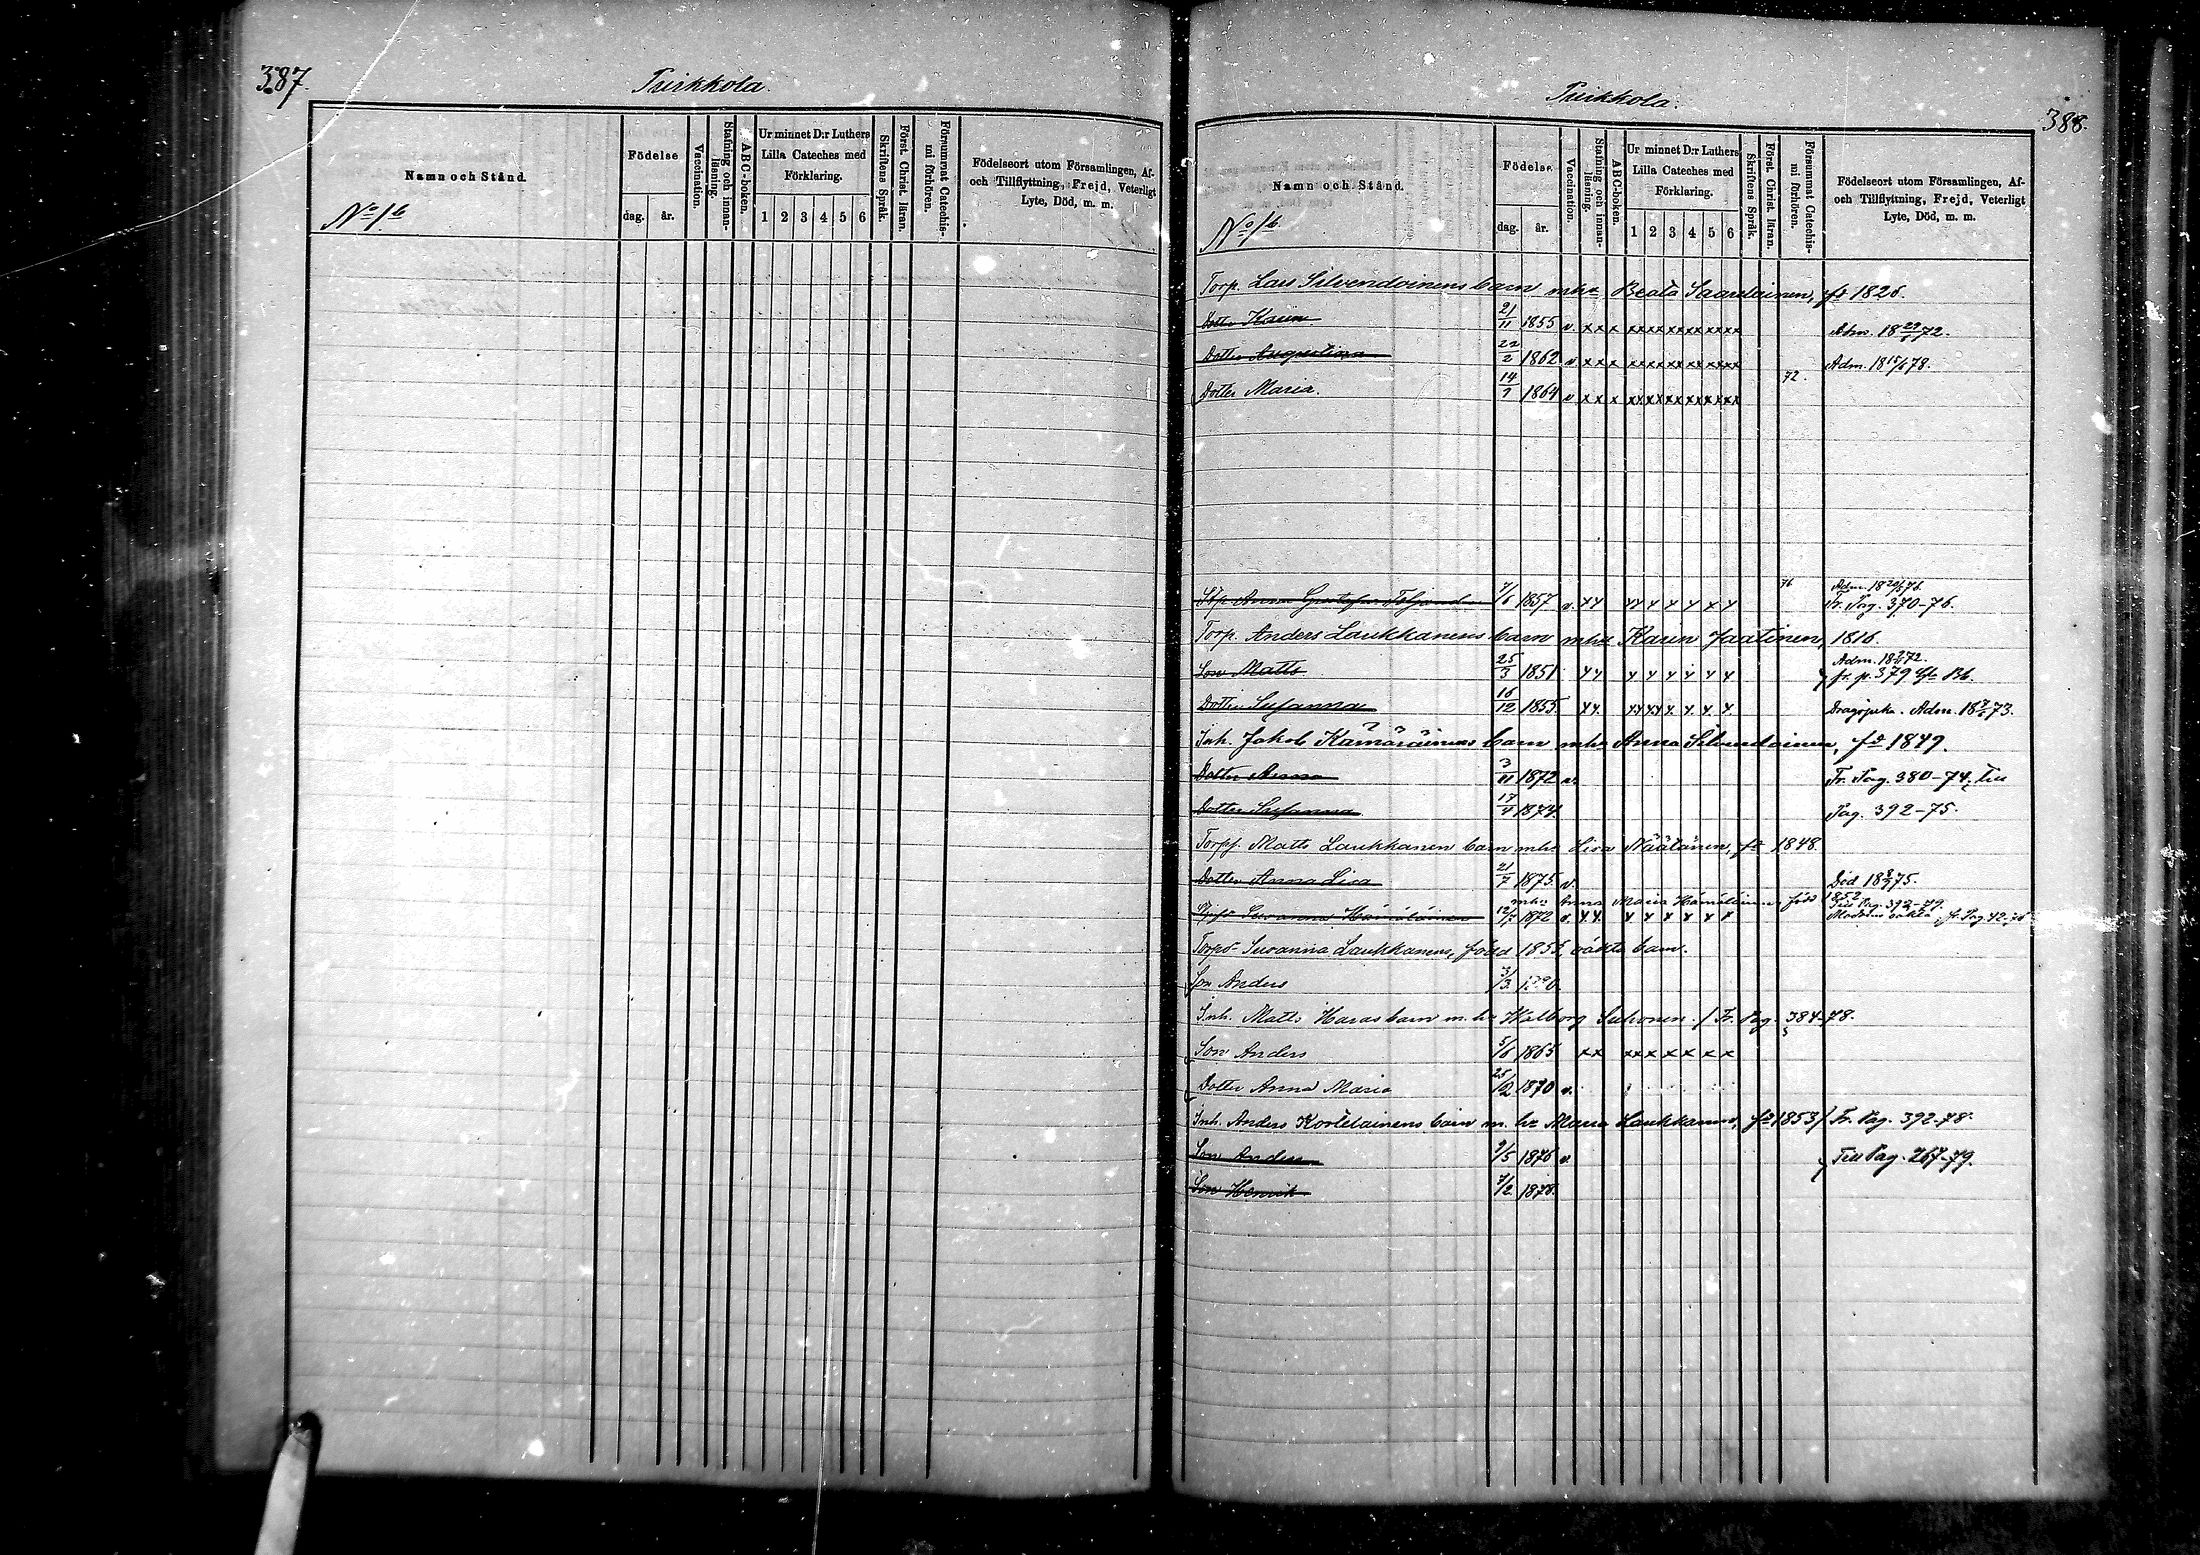 387.
Turkkola.
Namn och Stånd.
Födelse
dag. år.
Vaccination.
Stafning och innanläsning.
ABC-boken.
Ur minnet D:r Luthers Lilla Cateches med Förklaring.
1 2 3 4 5 6
Skriftens Språk.
Först. Christ. läran.
Försummat Catechismi förhören.
Födelseort utom Församlingen, Af- och Tillflyttning, Frejd, Veterligt Lyte, Död, m. m.
No 1b
Turkkola.
388.
Namn och Stånd.
Födelse.
dag. år.
Vaccination.
Stafning och innanläsning.
ABC-boken.
Ur minnet D:r Luthers Lilla Cateches med Förklaring.
1 2 3 4 5 6
Skriftens Språk.
Först. Christ. läran.
Försummat Catechismi förhören.
Födelseort utom Församlingen, Af- och Tillflyttning, Frejd, Veterligt Lyte, Död, m. m.
No 1b
Torp. Lars Silvendoinens barn mhu Beata Saarelainen, fd 1826.
Dotter Karin 21/11 1855 v x x x xx xx xx xx xx xx Adm. 18 72.
Dotter Augustina 22/2 1862 v x x x xx xx xx xx xx xx Adm. 18 15/6 78.
Dotter Maria. 14/7 1864 v x x x xx xx xx xx xx xx 72.
Anna Gustafva 7/6 1857 v. x x xx x x x x x 76 Adm. 18 76. Fr. Pag. 370-76.
Torp. Anders Laukkanens barn mhu Karin Jaatinen, 1816.
Son Matts 25/3 1851 x x x x x x x x Adm. 18 72. fr. p. 379
Dotter Susanna 16/12 1855. x x. xx xx x. x. x. x. Adm. 18 73.
Inh. Jakob Kämäräinens barn mhu Anna Silvendoinen, fd 1849.
Dotter Anna 3/11 1872 v. Fr. Pag. 380-74. Till
Dotter Susanna 17/4 1874. Pag. 392-75.
Torpf. Matts Laukkanen barn mhu Lisa Näätänen, fd 1848.
Dotter Anna Lisa 21/7 1875. v. Död 18 75.
mhu Anna Maria Hämäläinen född 1852
Susanna Hämäläinen 12/7 1872 v. x x. x x x x x x Till Pag. 392-79. Moderns oäkta fr. Pag. 42-76
Torps Susanna Laukkanens, född 1855, oäkta barn.
Son Anders 3/3. 1880.
Inh. Matts Haras barn m. hu Walborg Suhonen. / Fr. Pag. 384-78.
Son Anders 5/6 1865 x x xx x x x x x
Dotter Anna Maria 25/12 1870 v.
Inh. Anders Kortelainens barn m. hu Maria Laukkanen, fd 1853 / Fr. Pag. 392-78.
Son Anders 9/5 1876 v. Till Pag. 267-79.
Son Henrik 7/2 1878.